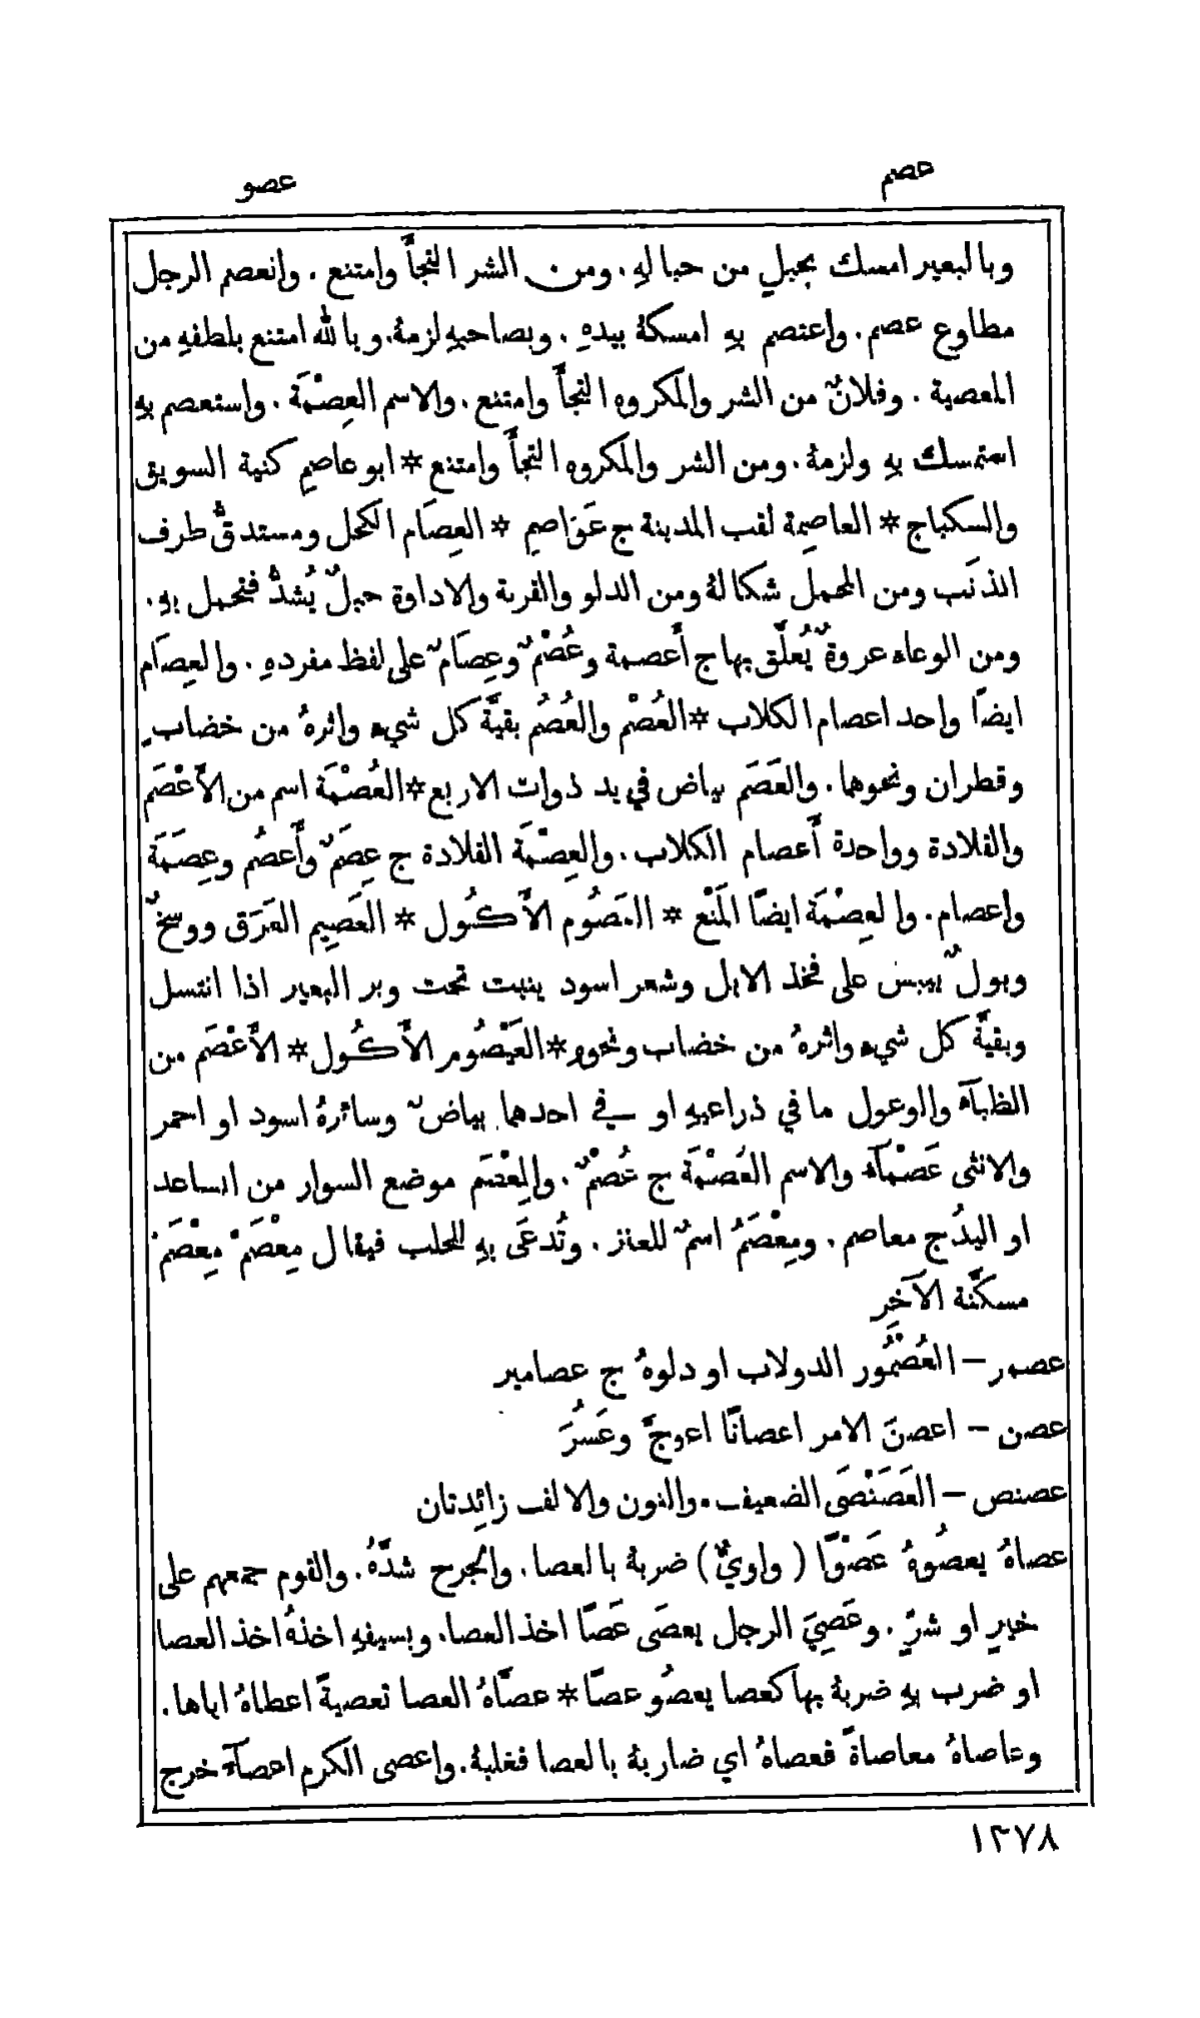 عصم
عصو
وبالبعير امسك بحبلٍ من حبالهِ. ومن الشر التجأَ وامتنع. وانعصم الرجل
مطاوع عصم. واعتصم بهِ امسكهُ بيدهِ. وبصاحبهِ لزمهُ. وبالله امتنع بلطفهِ من
المعصية. وفلانٌ من الشر والمكروه التجأَ وامتنع. والاسم العِصْمَة. واستعصم بهِ
استمسك بهِ ولزمهُ. ومن الشر والمكروه التجأَ وامتنع * ابو عاصمٍ كنية السويق
والسكباج * العاصِمة لقب المدينة ج عَوَاصم * العِصَام الكحل ومستدقُّ طرف
الذنَب ومن المحمل شكالهُ ومن الدلو والقربة والاداوة حبلٌ يُشدُّ فتحمل بهِ.
ومن الوعاء عروةٌ يُعلَّق بها ج أَعصمة وعُصْمٌ وعِصَامٌ على لفظ مفردهِ. والعِصَام
ايضًا واحد اعصام الكلاب * العُصْم والعُصُم بقيَّة كل شيء واثرهُ من خضاب
وقطران ونحوها. والعَصَم بياض في يد ذوات الاربع * العُصْمَة اسم من الأَعْصَم
والقلادة وواحدة أَعصام الكلاب. والعِصْمَة القلادة ج عِصَمٌ وأَعصُم وعِصَمَة
واعصام. والعِصْمَة ايضًا المَنْع * العَصُوم الأَكُول * العَصِيم العَرَق ووسخٌ
وبولٌ ييبس على فخذ الابل وشعر اسود ينبت تحت وبر البعير اذا انتسل
وبقيَّة كل شيء واثرهُ من خضاب ونحوهِ * العَيْصُوم الأَكُول * الأَعْصَم من
الظبآء والوعول ما في ذراعيهِ او في احدهما بياضٌ وسائرهُ اسود او احمر
والانثى عَصْمَآء والاسم العُصْمَة ج عُصْمٌ. والمِعْصَم موضع السوار من الساعد
او اليدُ ج معاصم. ومِعْصَمُ اسمٌ للعنز. وتُدعَى بهِ للحلب فيقال مِعْصَمْ مِعْصَمْ
مسكَّنة الآخِر
عصمر – العُصْمُور الدولاب او دلوهُ ج عصامير
عصن – اعصنَ الامر اعصانًا اعوجَّ وعَسُرَ
عصنص – العَصَنْصَى الضعيف. والنون والالف زائِدتان
عصاهُ يعصُوهُ عَصْوًا (واويٌّ) ضربهُ بالعصا. والجرح شدَّهُ. والقوم جمعهم على
خيرٍ او شرٍّ. وعَصِيَ الرجل يعصَى عَصًا اخذ العصا. وبسيفهِ اخذهُ اخذ العصا
او ضرب بهِ ضربهُ بها كعصا يعصُو عصًا * عصَّاهُ العصا تعصيةً اعطاهُ اياها.
وعاصاهُ معاصاةً فعصاهُ اي ضاربهُ بالعصا فغلبهُ. واعصى الكرم اعصآءً خرج
١٣٧٨